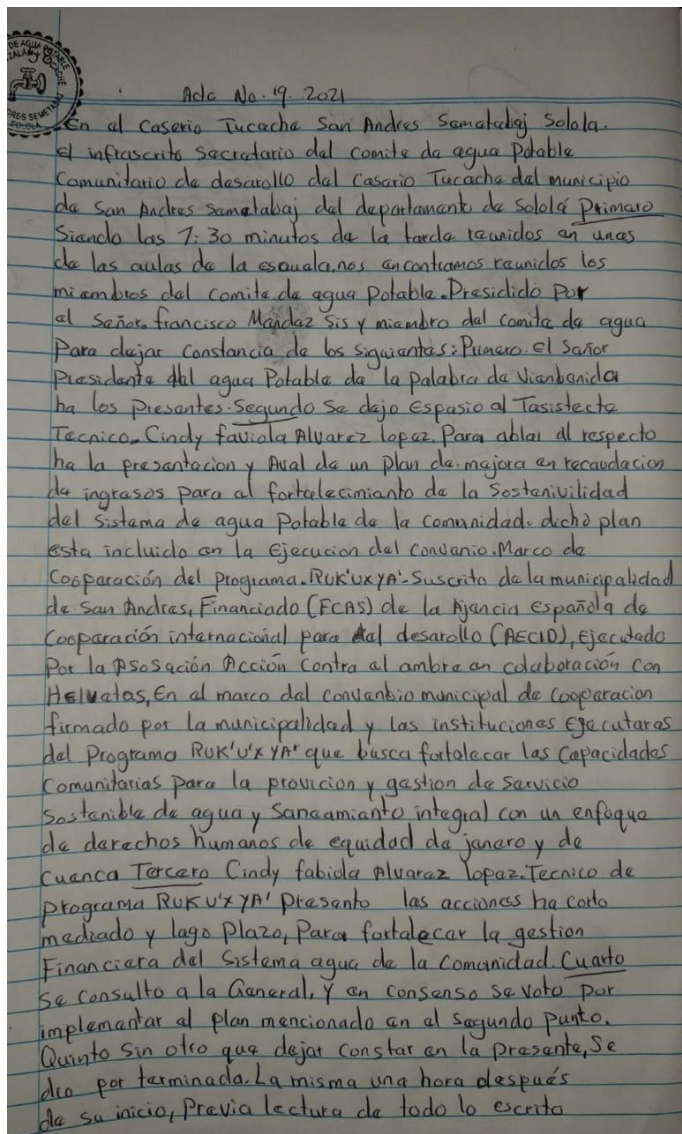 DE AGUA POTABLE
Acta No. 19. 2021
En el Caserio Tucache San Andres Semetabaj Solola.
El infrascrito Secretario del comite de agua Potable
Comunitario de desarollo del Caserio Tucache del municipio
de San Andres Semetabaj del departamento de Sololá Primero
Siendo las 7:30 minutos de la tarde reunidos en unas
de las aulas de la escuela. nos encontramos reunidos los
miembros del comite de agua Potable. Presidido Por
el Señor. francisco Mendez Sis y miembro del comite de agua
Para dejar Constancia de los siguientes: Primero. El Señor
Presidente del agua Potable da la Palabra de Vienbenida
ha los Presentes. Segundo Se dejo Espasio al Tasistecte
Tecnico. Cindy faviola Alvarez lopez. Para ablar al respecto
ha la presentacion y Aval de un Plan de mejora en recaudacion
de ingresos para el fortelecimiento de la Sostenivilidad
del Sistema de agua Potable de la comunidad. dicho plan
esta incluido en la Ejecucion del convenio. Marco de
Cooparación del programa. RUK'UX YA'- Suscrito de la municipalidad
de San Andres, Financiado (FCAS) de la Ajencia española de
Cooparación internacional para del desarollo (AECID), Ejecutado
Por la Asosación Acción Contra el ambre en colaboración con
Helvetas, En el marco del convenbio municipal de Cooperacion
firmado por la municipalidad y las instituciones Egecutaras
del Programa RUK'U'X YA' que busca fortalecer las Capacidades
Comunitarias para la provicion y gestion de Servicio
Sostenible de agua y Saneamiento integral con un enfoque
de derechos humanos de equidad de janero y de
Cuenca Tercero Cindy fabiola Alvarez lopez. Tecnico de
programa RUKU'X YA' Presento las acciones ha corto
mediado y lago Plazo, Para fortalecer la gestion
Financiera del Sistema agua de la Comunidad. Cuarto
Se consulto a la General, Y en consenso Se voto por
implementar el plan mencionado en el segundo punto.
Quinto Sin otro que dejar constar en la Presente, Se
dio por terminada. La misma una hora después
de su inicio, Previa lectura de todo lo escrito